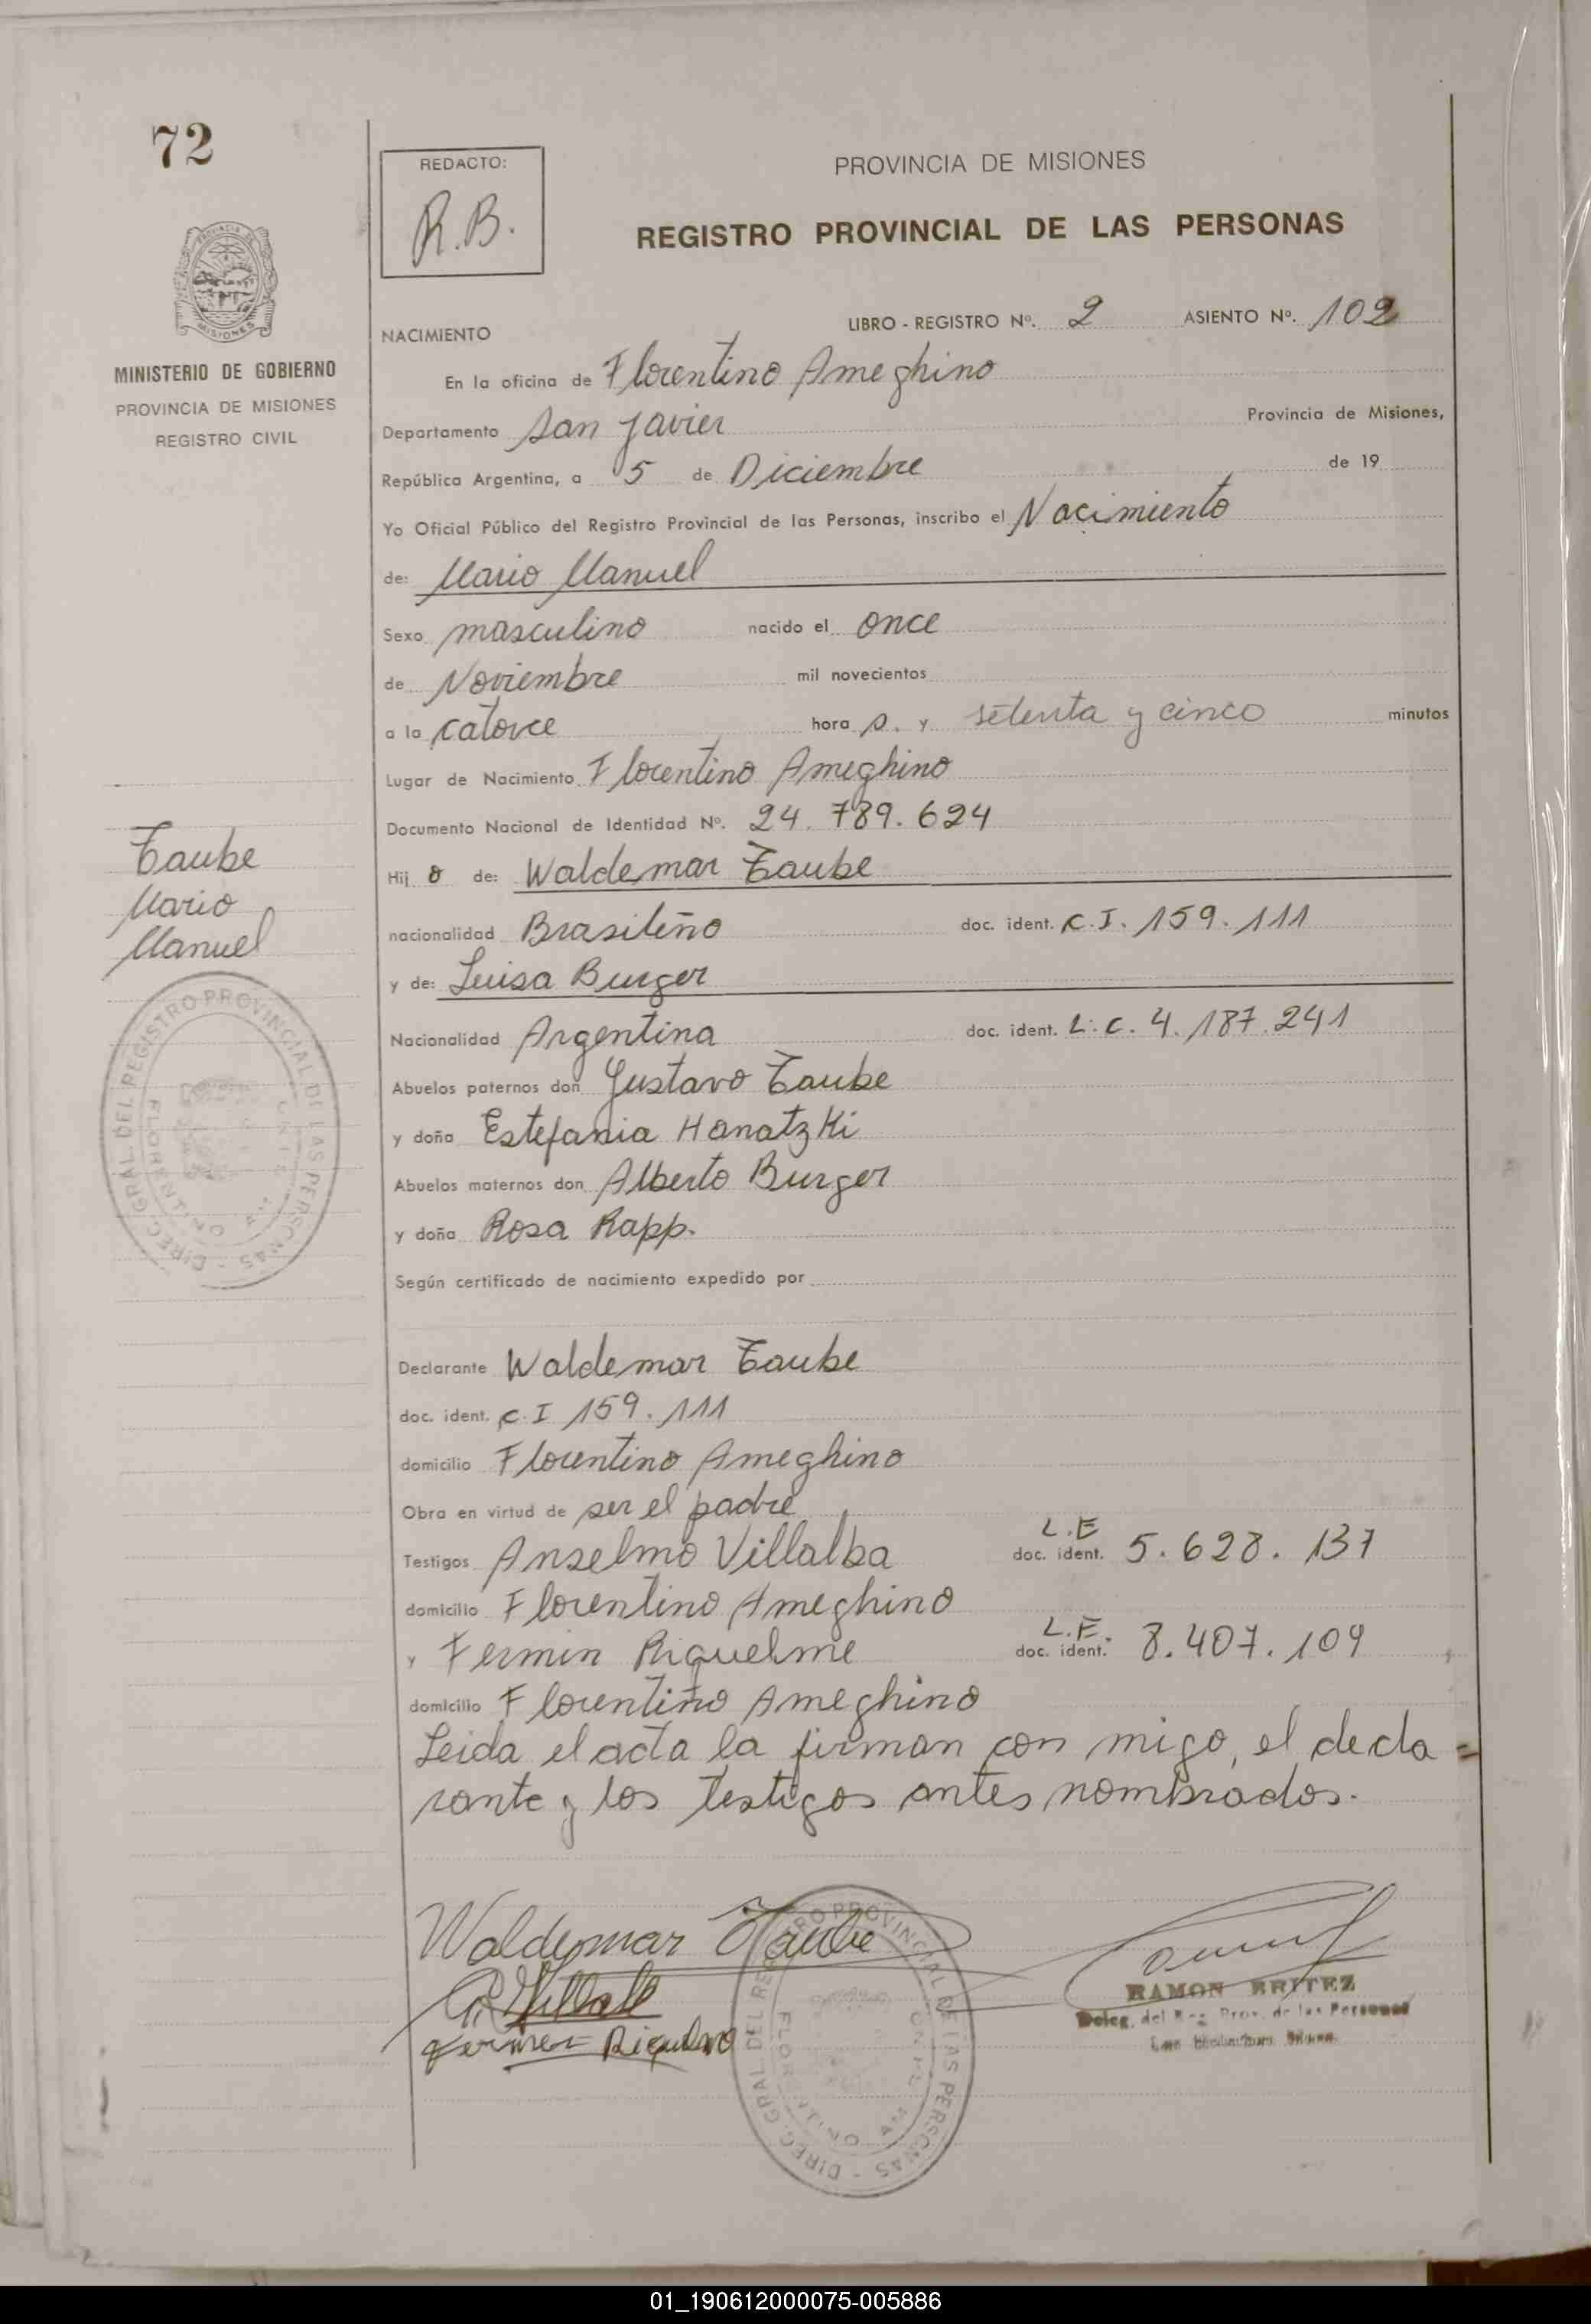 72
REDACTO:
R.B.
PROVINCIA DE MISIONES
REGISTRO PROVINCIAL DE LAS PERSONAS
MISIONES
MINISTERIO DE GOBIERNO
PROVINCIA DE MISIONES
REGISTRO CIVIL
NACIMIENTO
LIBRO - REGISTRO Nº. 2 ASIENTO Nº. 102
En la oficina de Florentino Ameghino
Departamento San Javier Provincia de Misiones,
República Argentina, a 5 de Diciembre de 19
Yo Oficial Público del Registro Provincial de las Personas, inscribo el Nacimiento
de: Mario Manuel
Sexo masculino nacido el once
de Noviembre mil novecientos
a la catorce hora s. y setenta y cinco minutos
Lugar de Nacimiento Florentino Ameghino
Documento Nacional de Identidad Nº. 24.789.624
Hij o de: Waldemar Taube
nacionalidad Brasileño doc. ident. C.I. 159.111
y de: Luisa Burger
Nacionalidad Argentina doc. ident. L.C. 4.187.241
Abuelos paternos don Gustavo Taube
y doña Estefania Hanatzki
Abuelos maternos don Alberto Burger
y doña Rosa Rapp.
Según certificado de nacimiento expedido por
Declarante Waldemar Taube
doc. ident. C.I 159.111
domicilio Florentino Ameghino
Obra en virtud de ser el padre
Testigos Anselmo Villalba doc. ident. L.E 5.628.137
domicilio Florentino Ameghino
y Fermin Riquelme doc. ident. L.E. 8.407.109
domicilio Florentino Ameghino
Leida el acta la firman con migo, el decla=
rante y los testigos antes nombrados.
Taube
Mario
Manuel
DIREC. GRAL. DEL REGISTRO PROVINCIAL DE LAS PERSONAS
Waldemar Taube
Riquelme
DIREC. GRAL. DEL REGISTRO PROVINCIAL DE LAS PERSONAS
RAMON BRITEZ
Deleg. del Reg. Prov. de las Personas
01_190612000075-005886